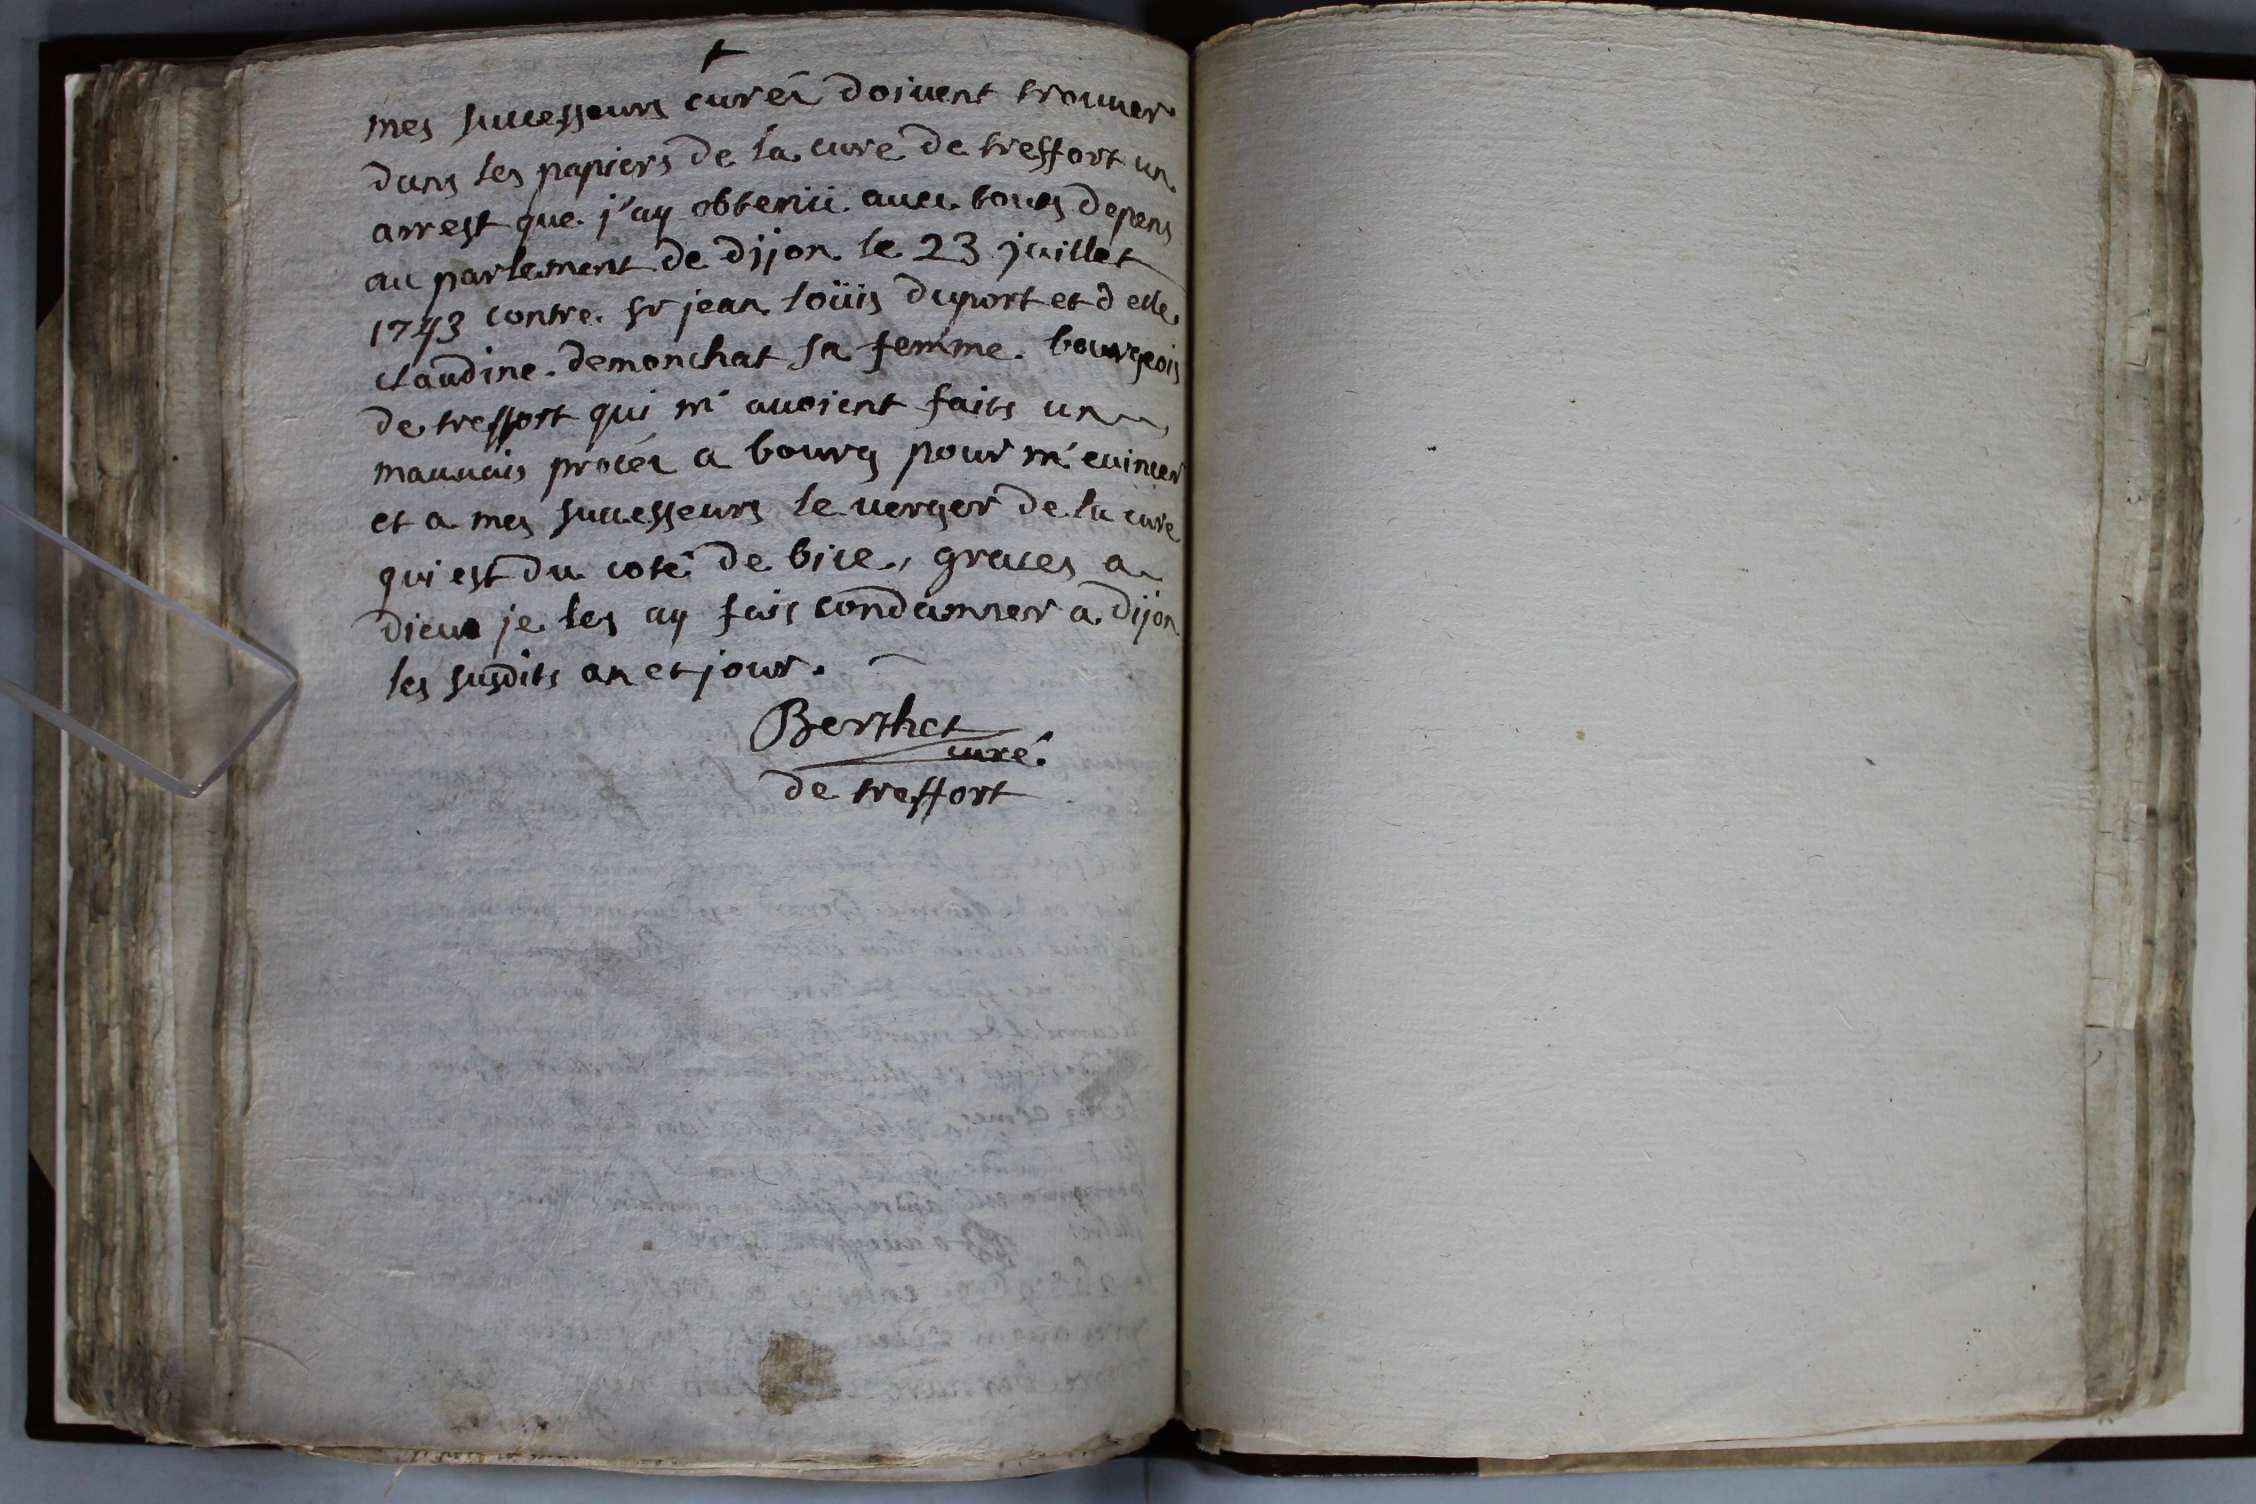 mes successeurs curés doivent trouver
dans les papiers de la cure de treffort un
arrest que j'ay obtenü avec touts depens
au parlement de dijon le 23 juillet
1743 contre sr jean loüis duport et delle
claudine demonchat sa femme bourgeois
de treffort qui m'avoient faits un
mauvais procés a bourg pour m'evincer
et a mes successeurs le verger de la cure
qui est du coté de bise, graces a
dieu je les ay fais condamner a dijon
les susdits an et jour.
Berthet
curé
de treffort